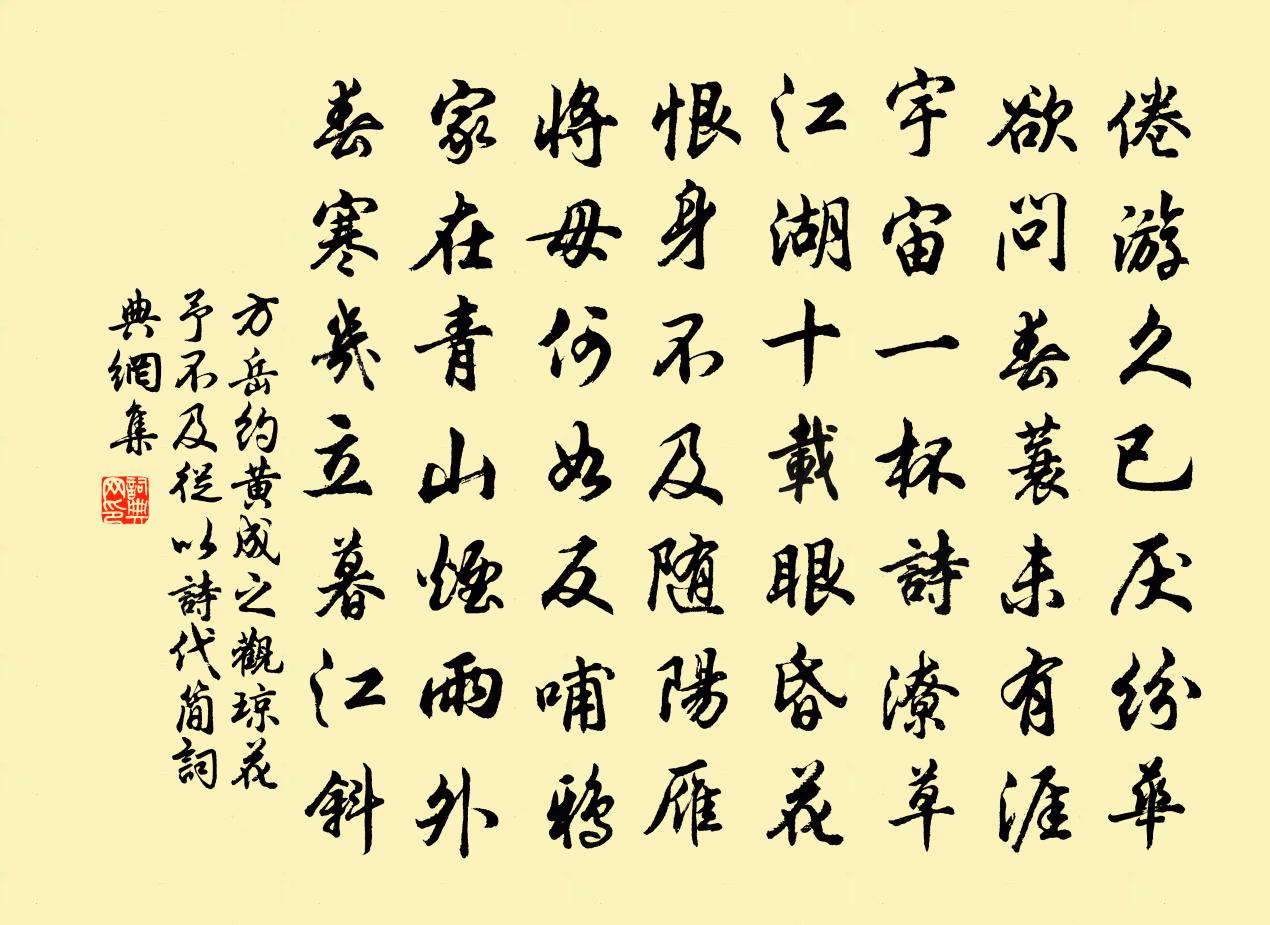 倦游久已厌紛華
欲問春蓑未有涯
宇宙一杯詩潦草
江湖十載眼昏花
恨身不及随陽雁
將母何如反哺鴉
家在青山煙雨外
春寒幾立暮江斜
方岳約黄成之觀琼花
予不及從以詩代简詞
典網集
詞典网印